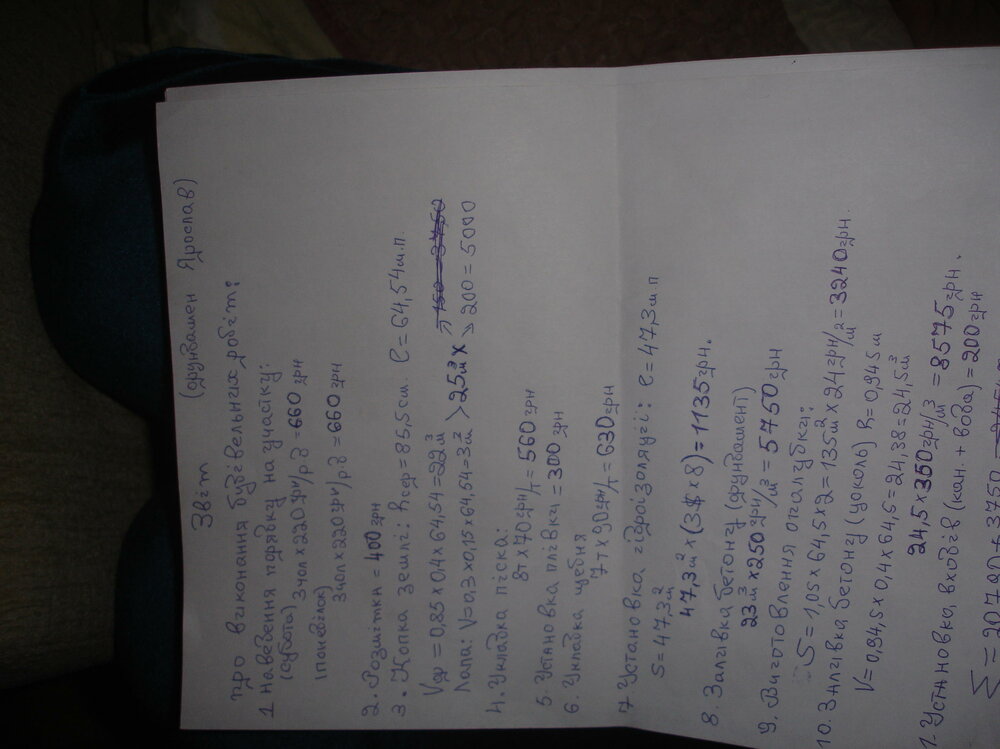 Звіт (фундамент Ярослав)
про виконання будівельних робіт:
1 Наведення порядку на участку:
(субота) 3 чол х 220 грн/р.д = 660 грн
(понеділок)
3 чол х 220 грн/р.д = 660 грн
2. Розмітка = 400 грн
3. Копка землі: hсер = 85,5см. l = 64,54 м.п.
Vф = 0,85 х 0,4 х 64,54 = 22м³
Лапа: V = 0,3 х 0,15 х 64,54 = 3м³ > 25м³ х 200 = 5000
4. Укладка піска:
8т х 70 грн/т = 560 грн
5. Установка плівки = 300 грн
6. Укладка щебня
7т х 90 грн/т = 630 грн
7 Установка гідроізоляуії: l = 47,3 м п
S = 47,3м²
47,3м² х (3$ х 8) = 1135 грн.
8. Залівка бетону (фундамент)
23м³ х 250 грн/м³ = 5750 грн
9. Виготовлення опалубкі:
S = 1,05 х 64,5 х 2 = 135м² х 24 грн/м² = 3240 грн.
10. Залівка бетону (цоколь) h = 0,945м
V = 0,94,5 х 0,4 х 64,5 = 24,38 = 24,5м³
24,5 х 350 грн/м³ = 8575 грн.
1. Установка входів (кан. + вода) = 200 грн
Σ = 20790 + 3750